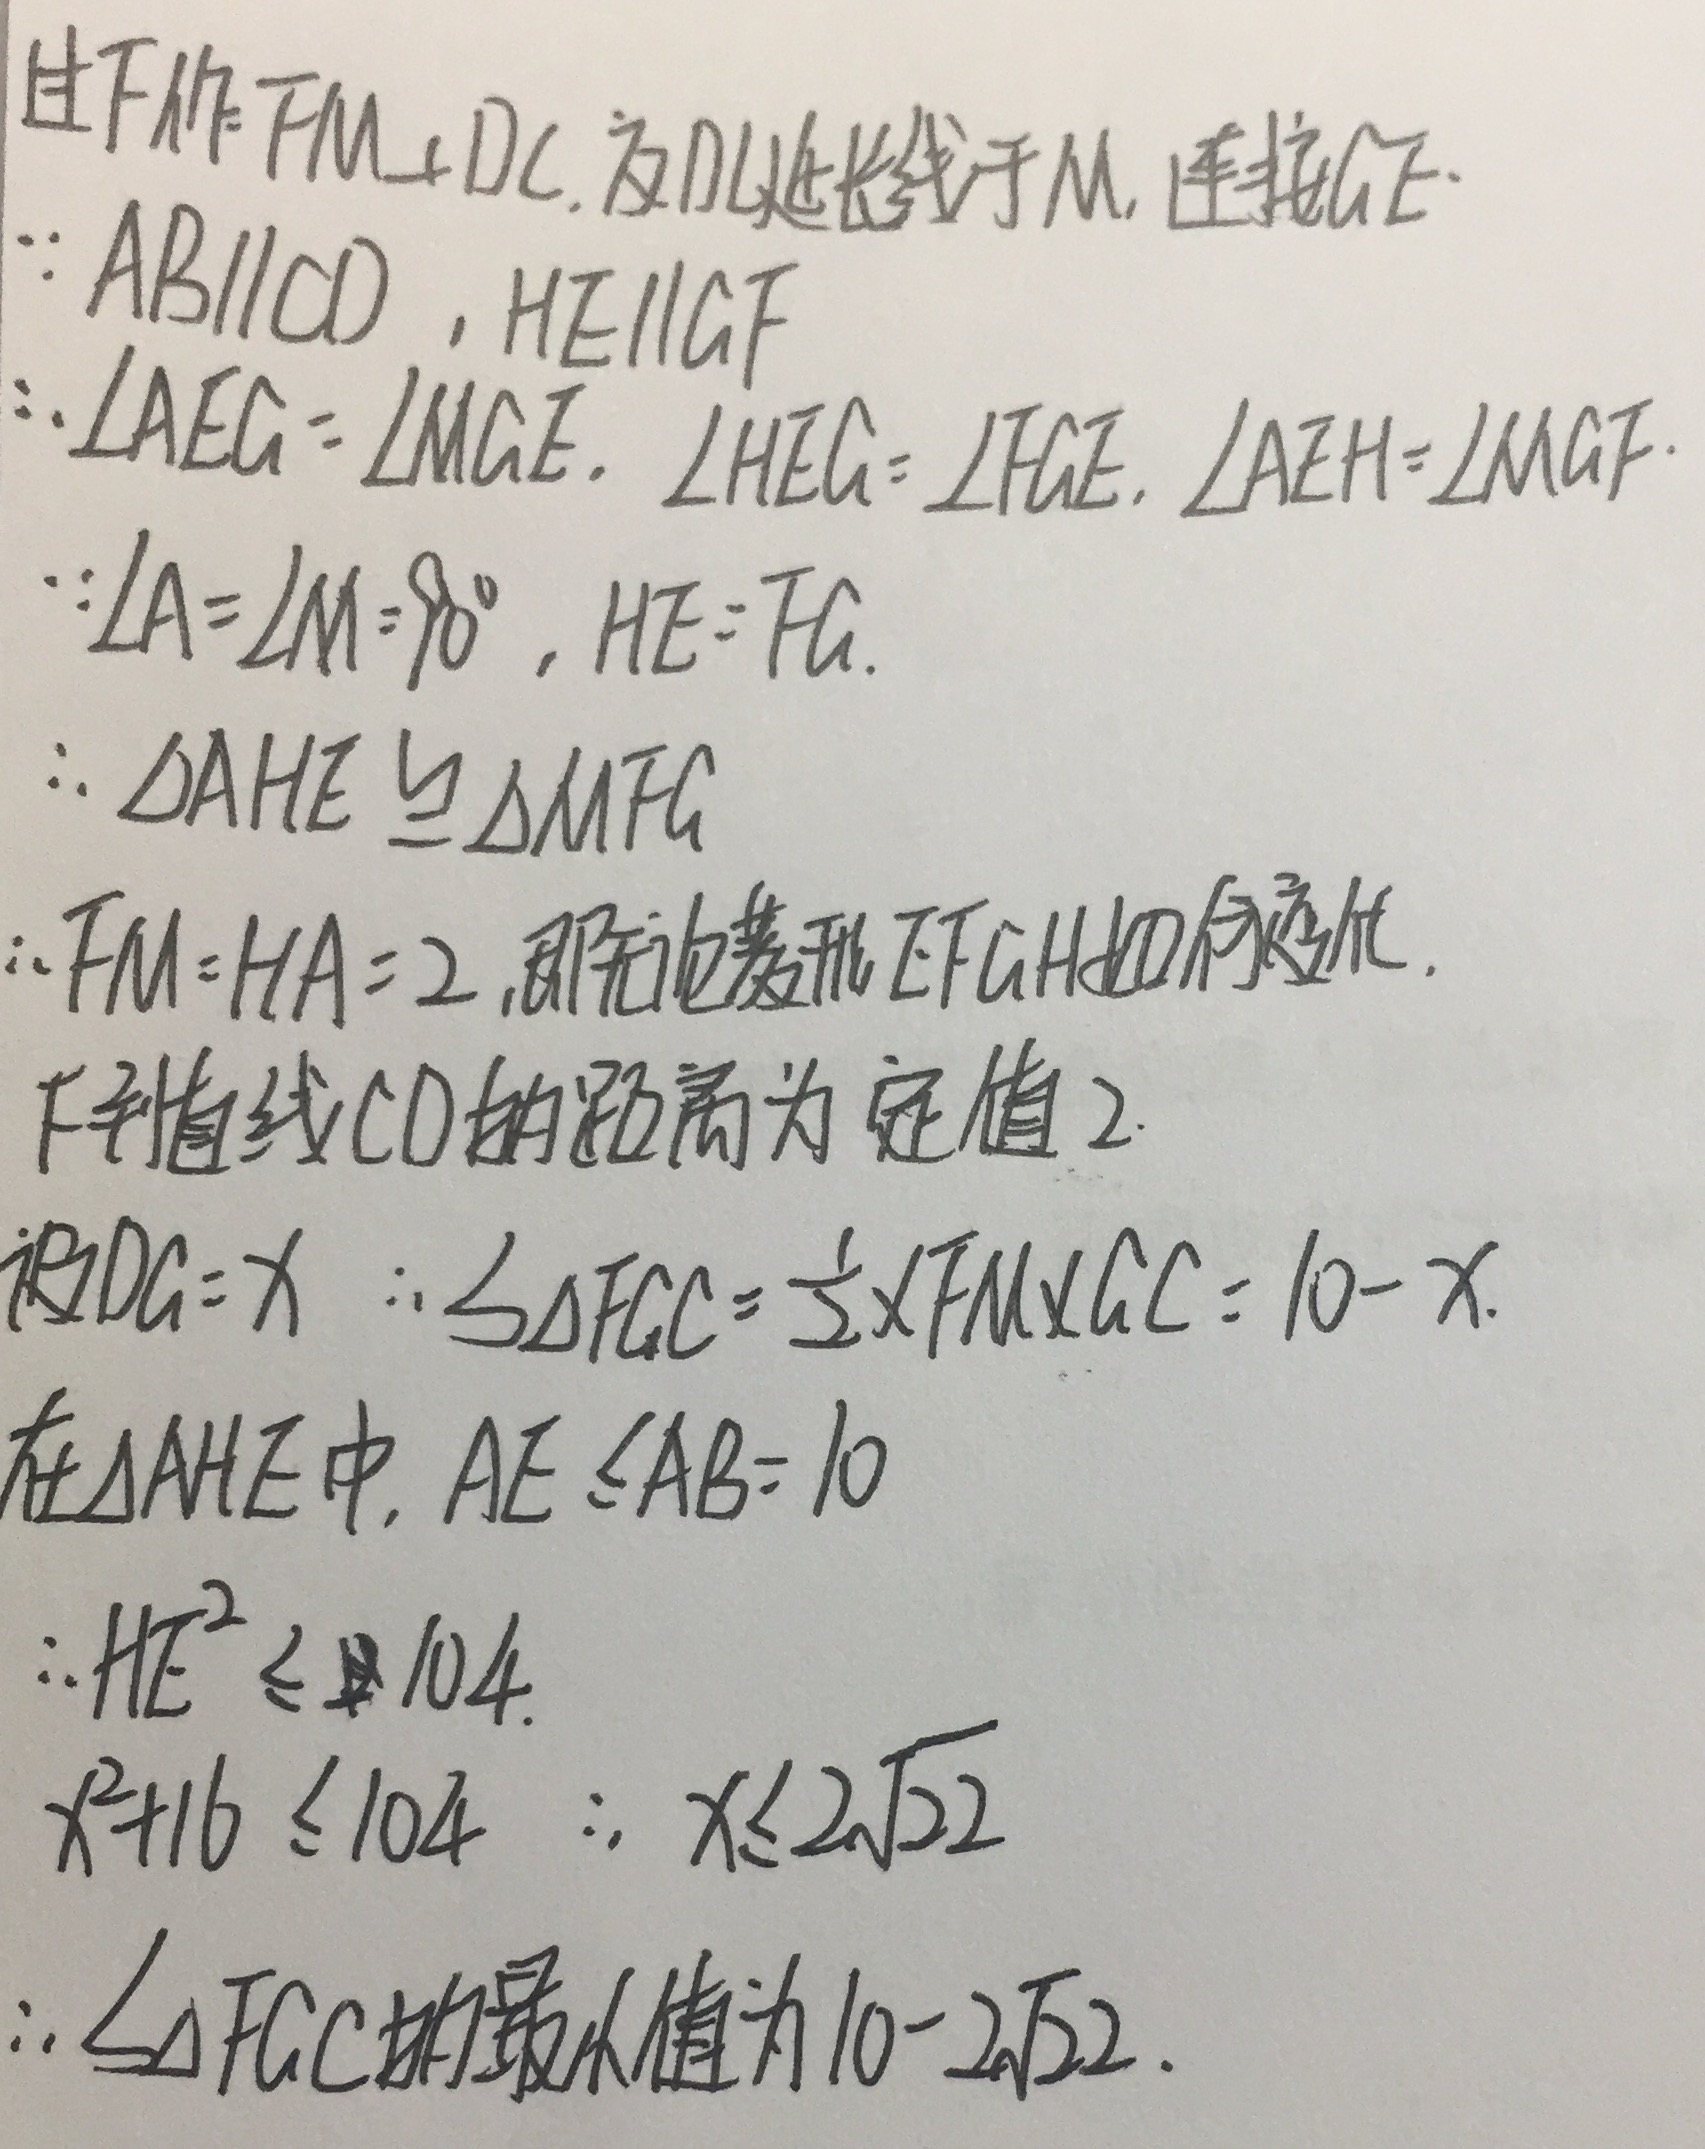 过F作FM⊥DC,交DC延长线于M,连接GE.
∵AB∥CD,HE∥GF
∴∠AEG=∠MGE,∠HEG=∠FGE,∠AEH=∠MGF.
∵∠A=∠M=90°,HE=FG.
∴△AHE≌△MFG
∴FM=HA=2,即无论菱形EFGH如何变化,
F到直线CD的距离为定值2.
设DG=x ∴S△FGC=½×FM×GC=10-x.
在△AHE中,AE≤AB=10
∴HE²≤104.
x²+16≤104 ∴x≤2√22
∴S△FGC的最小值为10-2√22.